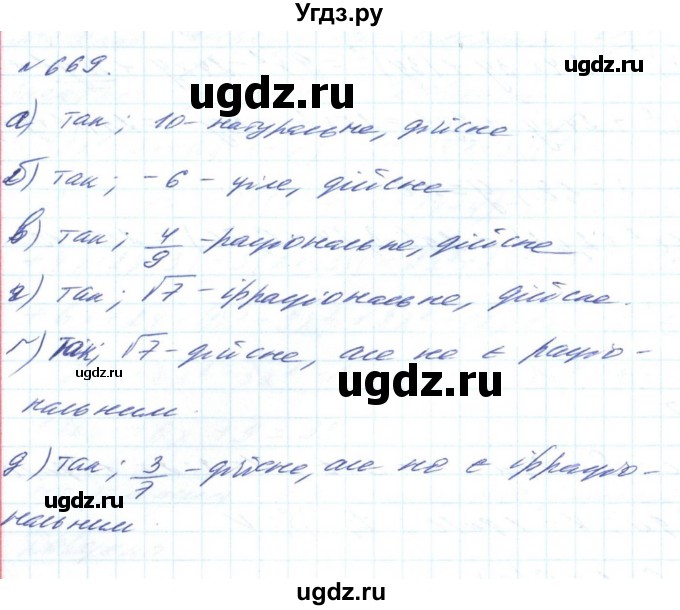 Угдз.ру
№669.
ugdz.ru
а) так; 10 - натуральне, дійсне
б) так; -6 - ціле, дійсне
в) так; 4/9 - раціональне, дійсне
г) так; √7 - ірраціональне, дійсне.
ґ) так; √7 - дійсне, але не є раціо-
ugdz.ru
ugdz.ru
нальним.
д) так; 3/7 - дійсне, але не є ірраціо-
ugdz.ru
ugdz.ru
нальним.
ugdz.ru